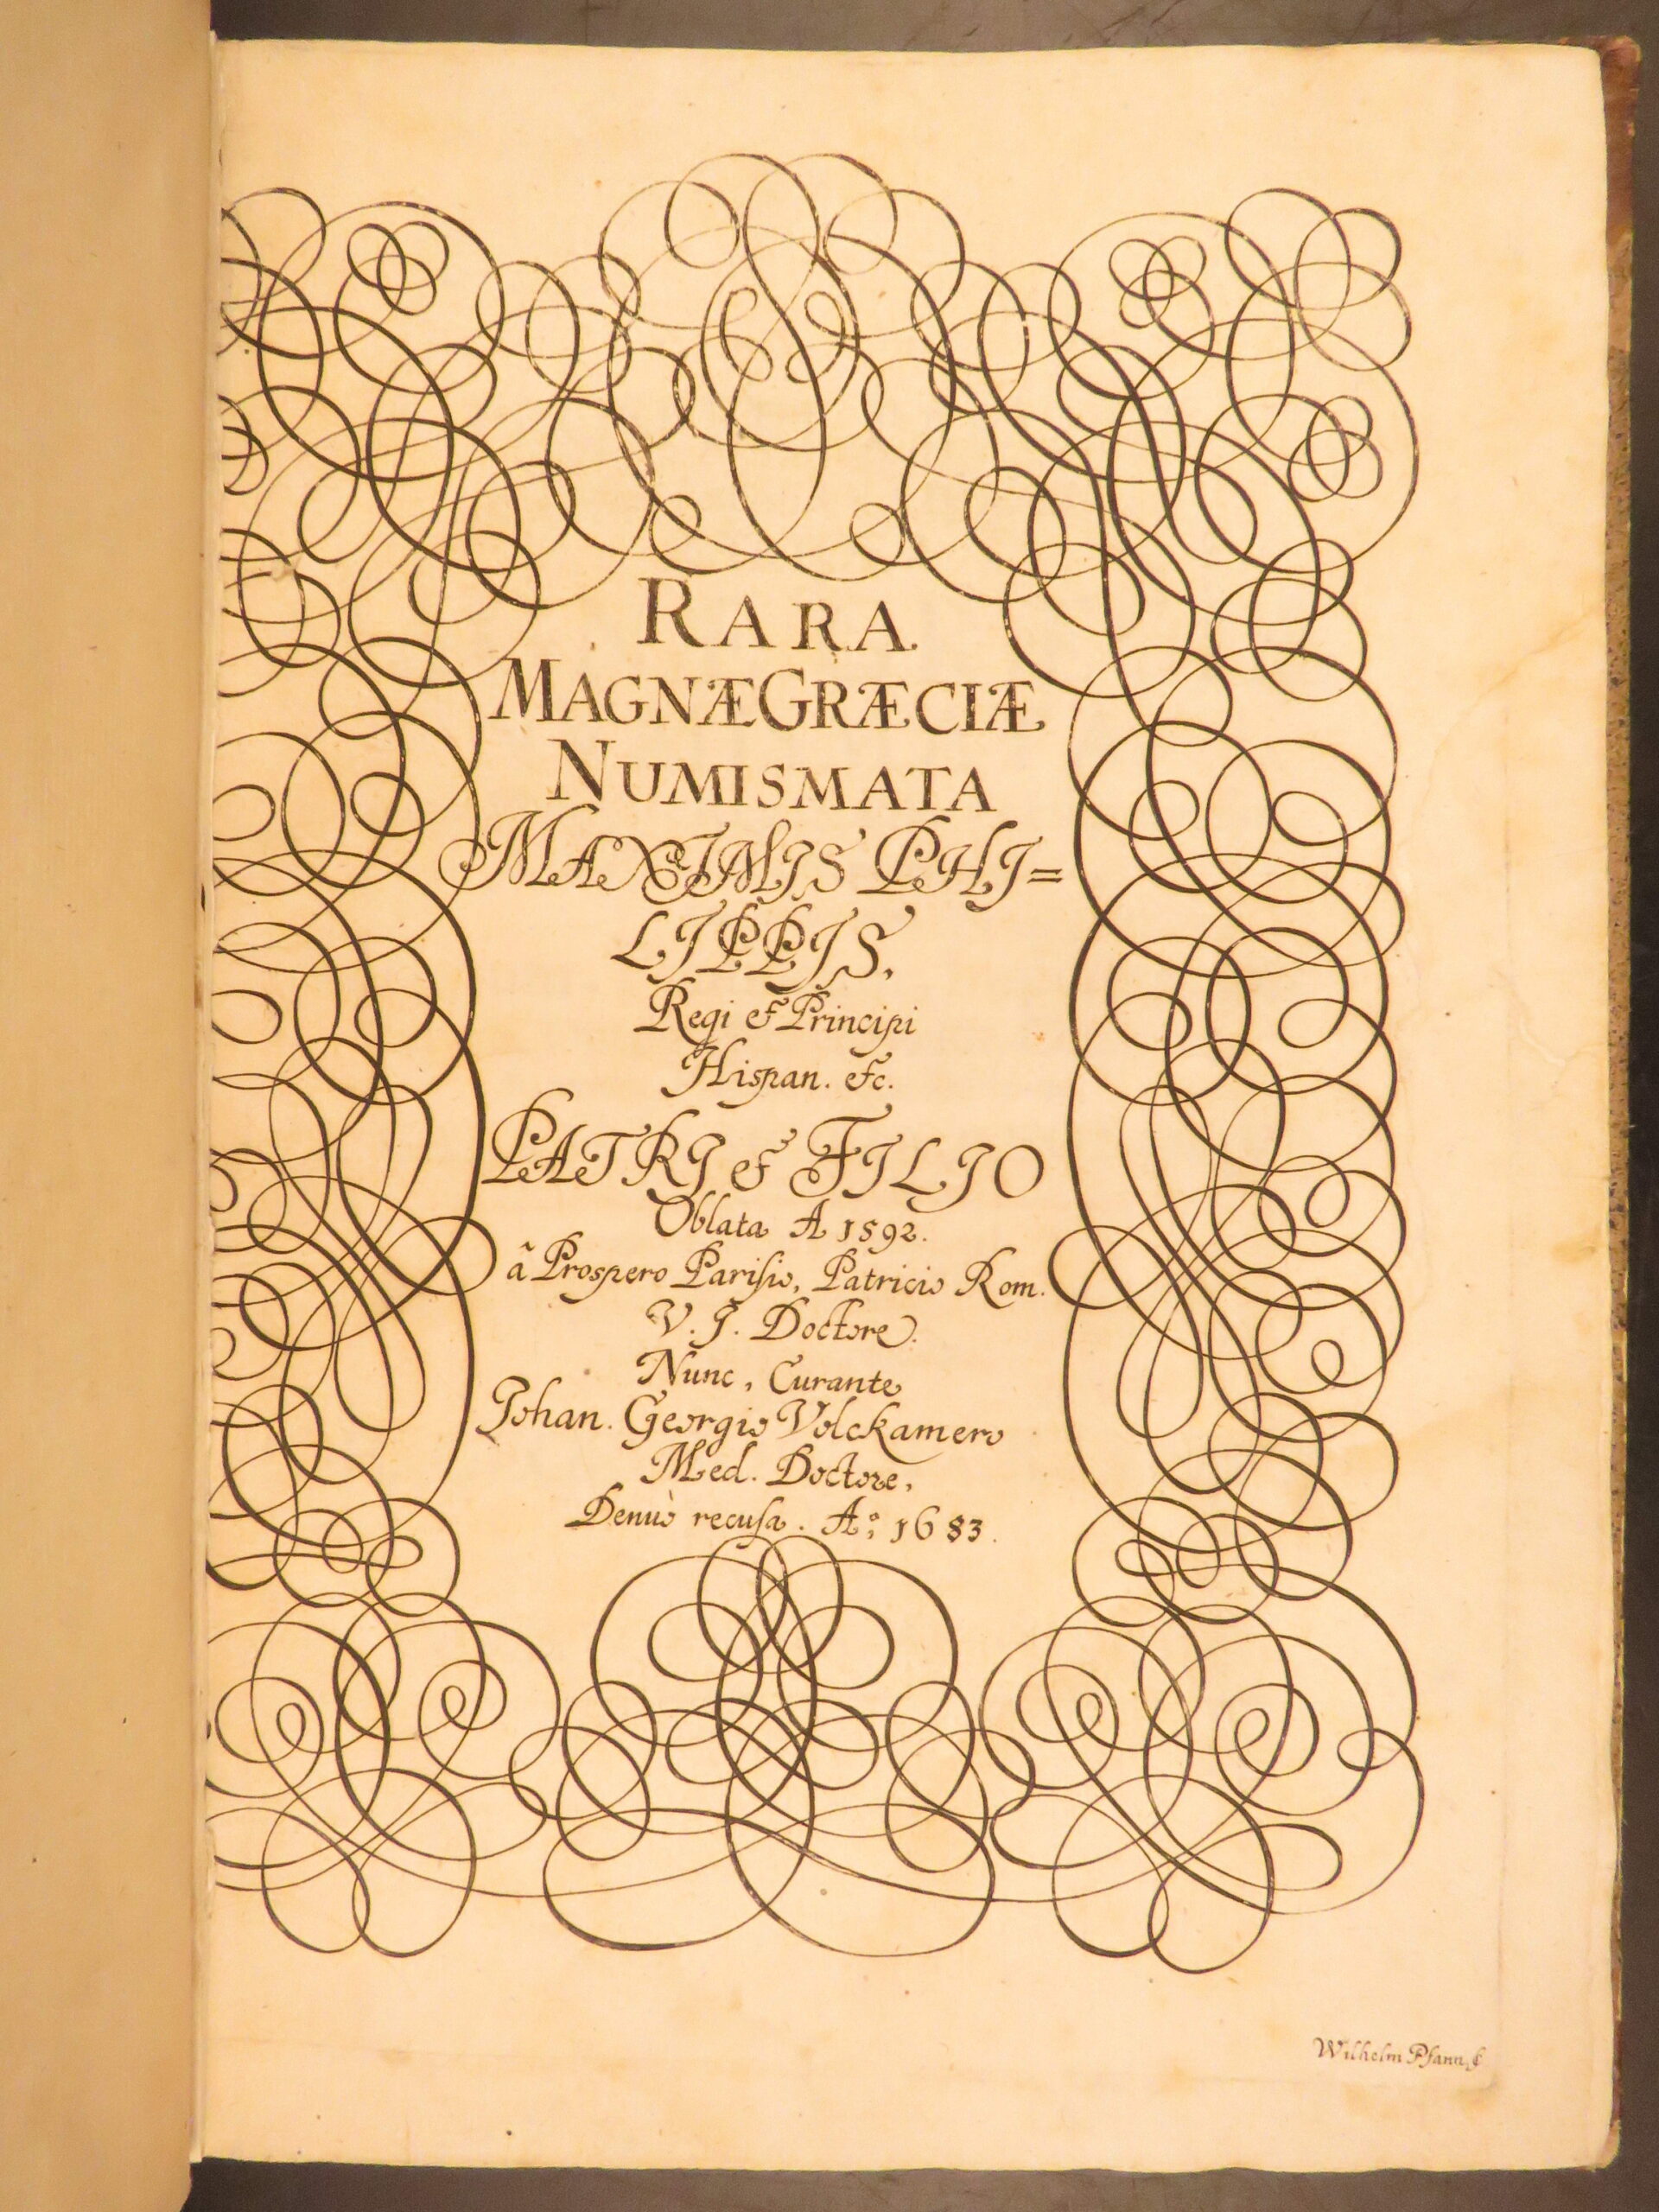 RARA
MAGNÆ GRÆCIÆ
NUMISMATA
MAXIMIS PHI=
LIPPIS,
Regi & Principi
Hispan. &c.
PATRI & FILIO
Oblata A 1592.
â Prospero Parisio, Patricio Rom.
V. J. Doctore.
Nunc, Curante
Johan. Georgio Volckamero
Med. Doctore,
Denuò recusa. Aº: 1683.
Wilhelm Pfann